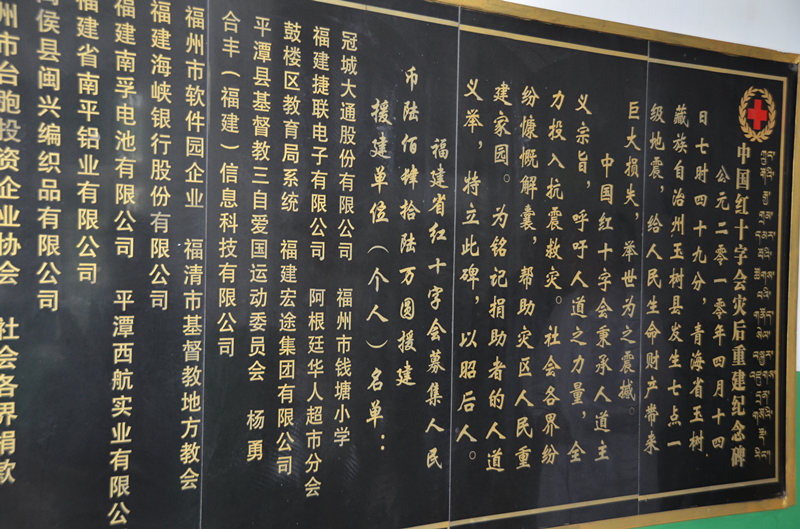 中国红十字会灾后重建纪念碑
公元二零一零年四月十四
日七时四十九分，青海省玉树
藏族自治州玉树县发生七点一
级地震，给人民生命财产带来
巨大损失，举世为之震撼。
中国红十字会秉承人道主
义宗旨，呼吁人道之力量，全
力投入抗震救灾。社会各界纷
纷慷慨解囊，帮助灾区人民重
建家园。为铭记捐助者的人道
义举，特立此碑，以昭后人。
福建省红十字会募集人民
币陆佰肆拾陆万圆援建
援建单位（个人）名单：
冠城大通股份有限公司 福州市钱塘小学
福建捷联电子有限公司 阿根廷华人超市分会
鼓楼区教育局系统 福建宏途集团有限公司
平潭县基督教三自爱国运动委员会 杨勇
合丰（福建）信息科技有限公司
福州市软件园企业 福清市基督教地方教会
福建海峡银行股份有限公司
福建南孚电池有限公司 平潭西航实业有限公
福建省南平铝业有限公司
侯县闽兴编织品有限公司
州市台胞投资企业协会 社会各界捐款